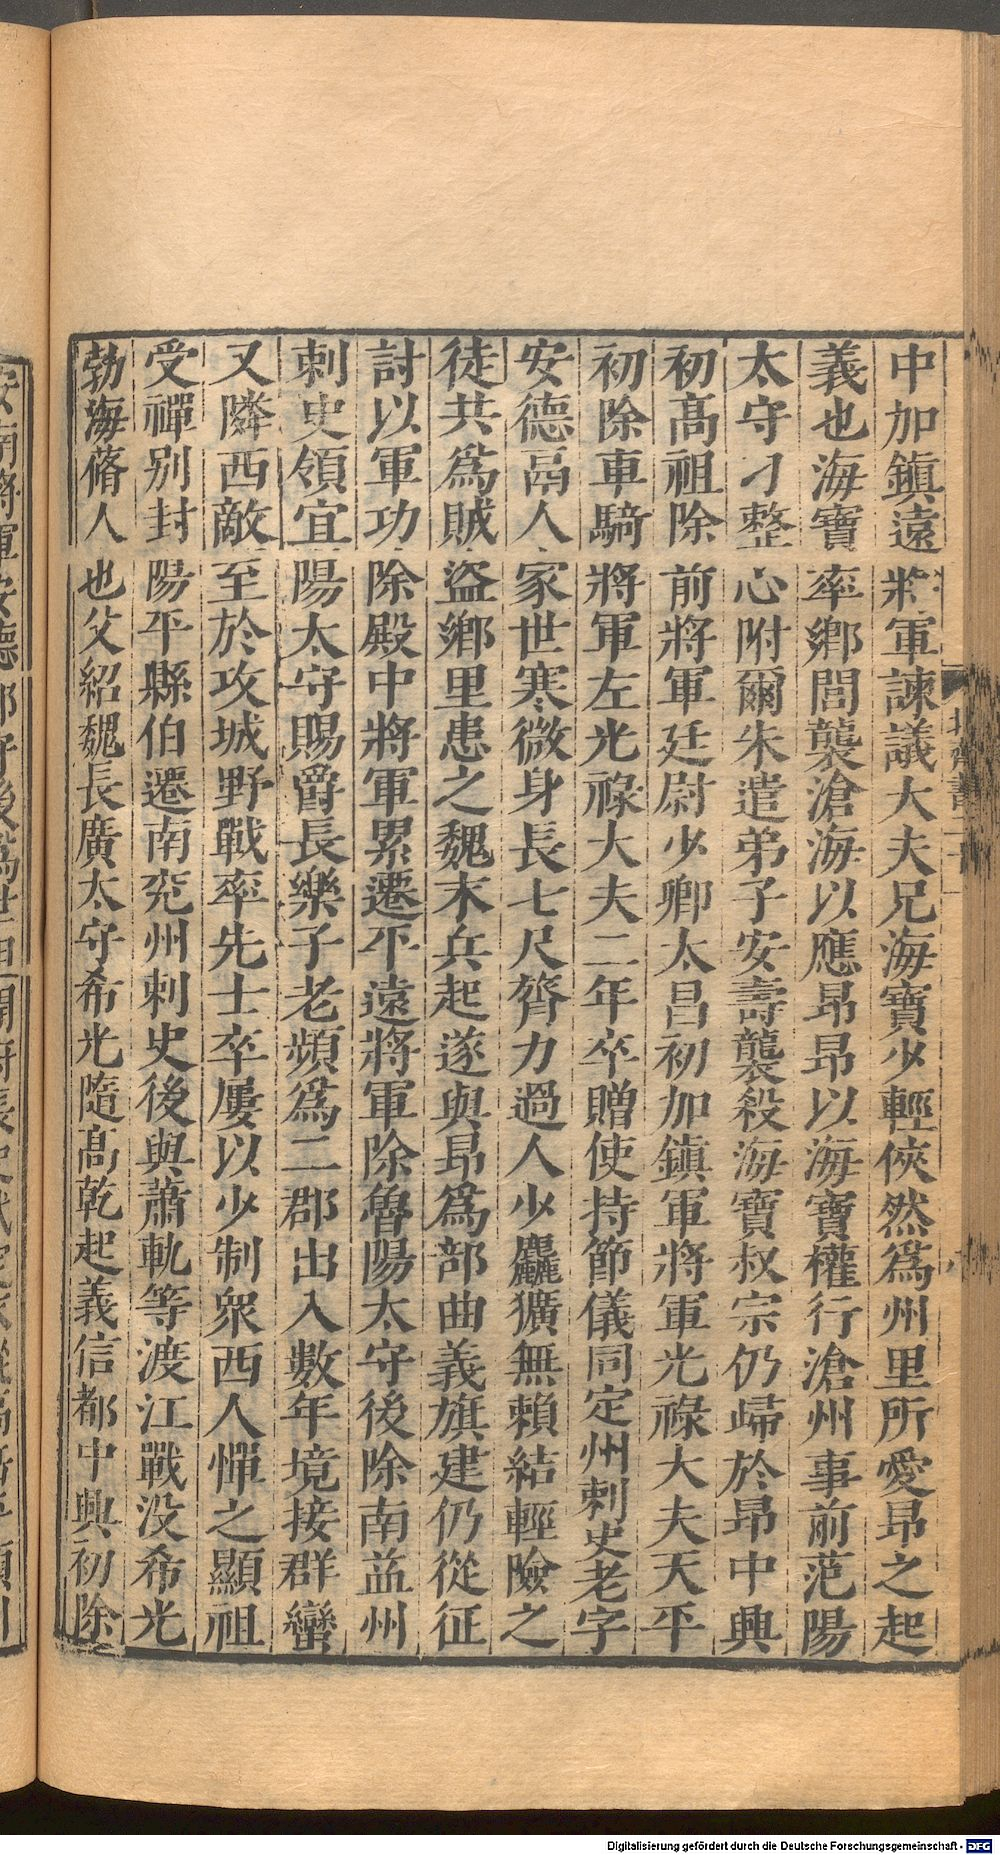 中加鎮遠將軍諫議大夫兄海寶少輕俠然爲州里所愛昂之起
義也海寶率鄉閭襲滄海以應昂昂以海寶權行滄州事前范陽
太守刁整心附爾朱遣弟子安壽襲殺海寶叔宗仍歸於昂中興
初高祖除前將軍廷尉少卿太昌初加鎮軍將軍光祿大夫天平
初除車騎將軍左光祿大夫二年卒贈使持節儀同定州刺史老字
安德鬲人家世寒微身長七尺膂力過人少麤獷無賴結輕險之
徒共爲賊盜鄉里患之魏末兵起遂與昂爲部曲義旗建仍從征
討以軍功除殿中將軍累遷平遠將軍除魯陽太守後除南益州
刺史領宜陽太守賜爵長樂子老頻爲二郡出入數年境接群蠻
又隣西敵至於攻城野戰率先士卒屢以少制衆西人憚之顯祖
受禪別封陽平縣伯遷南兖州刺史後與蕭軌等渡江戰没希光
勃海蓨人也父紹魏長廣太守希光隨髙乾起義信都中興初除
北齊書二十一
八
Digitalisierung gefördert durch die Deutsche Forschungsgemeinschaft - DFG